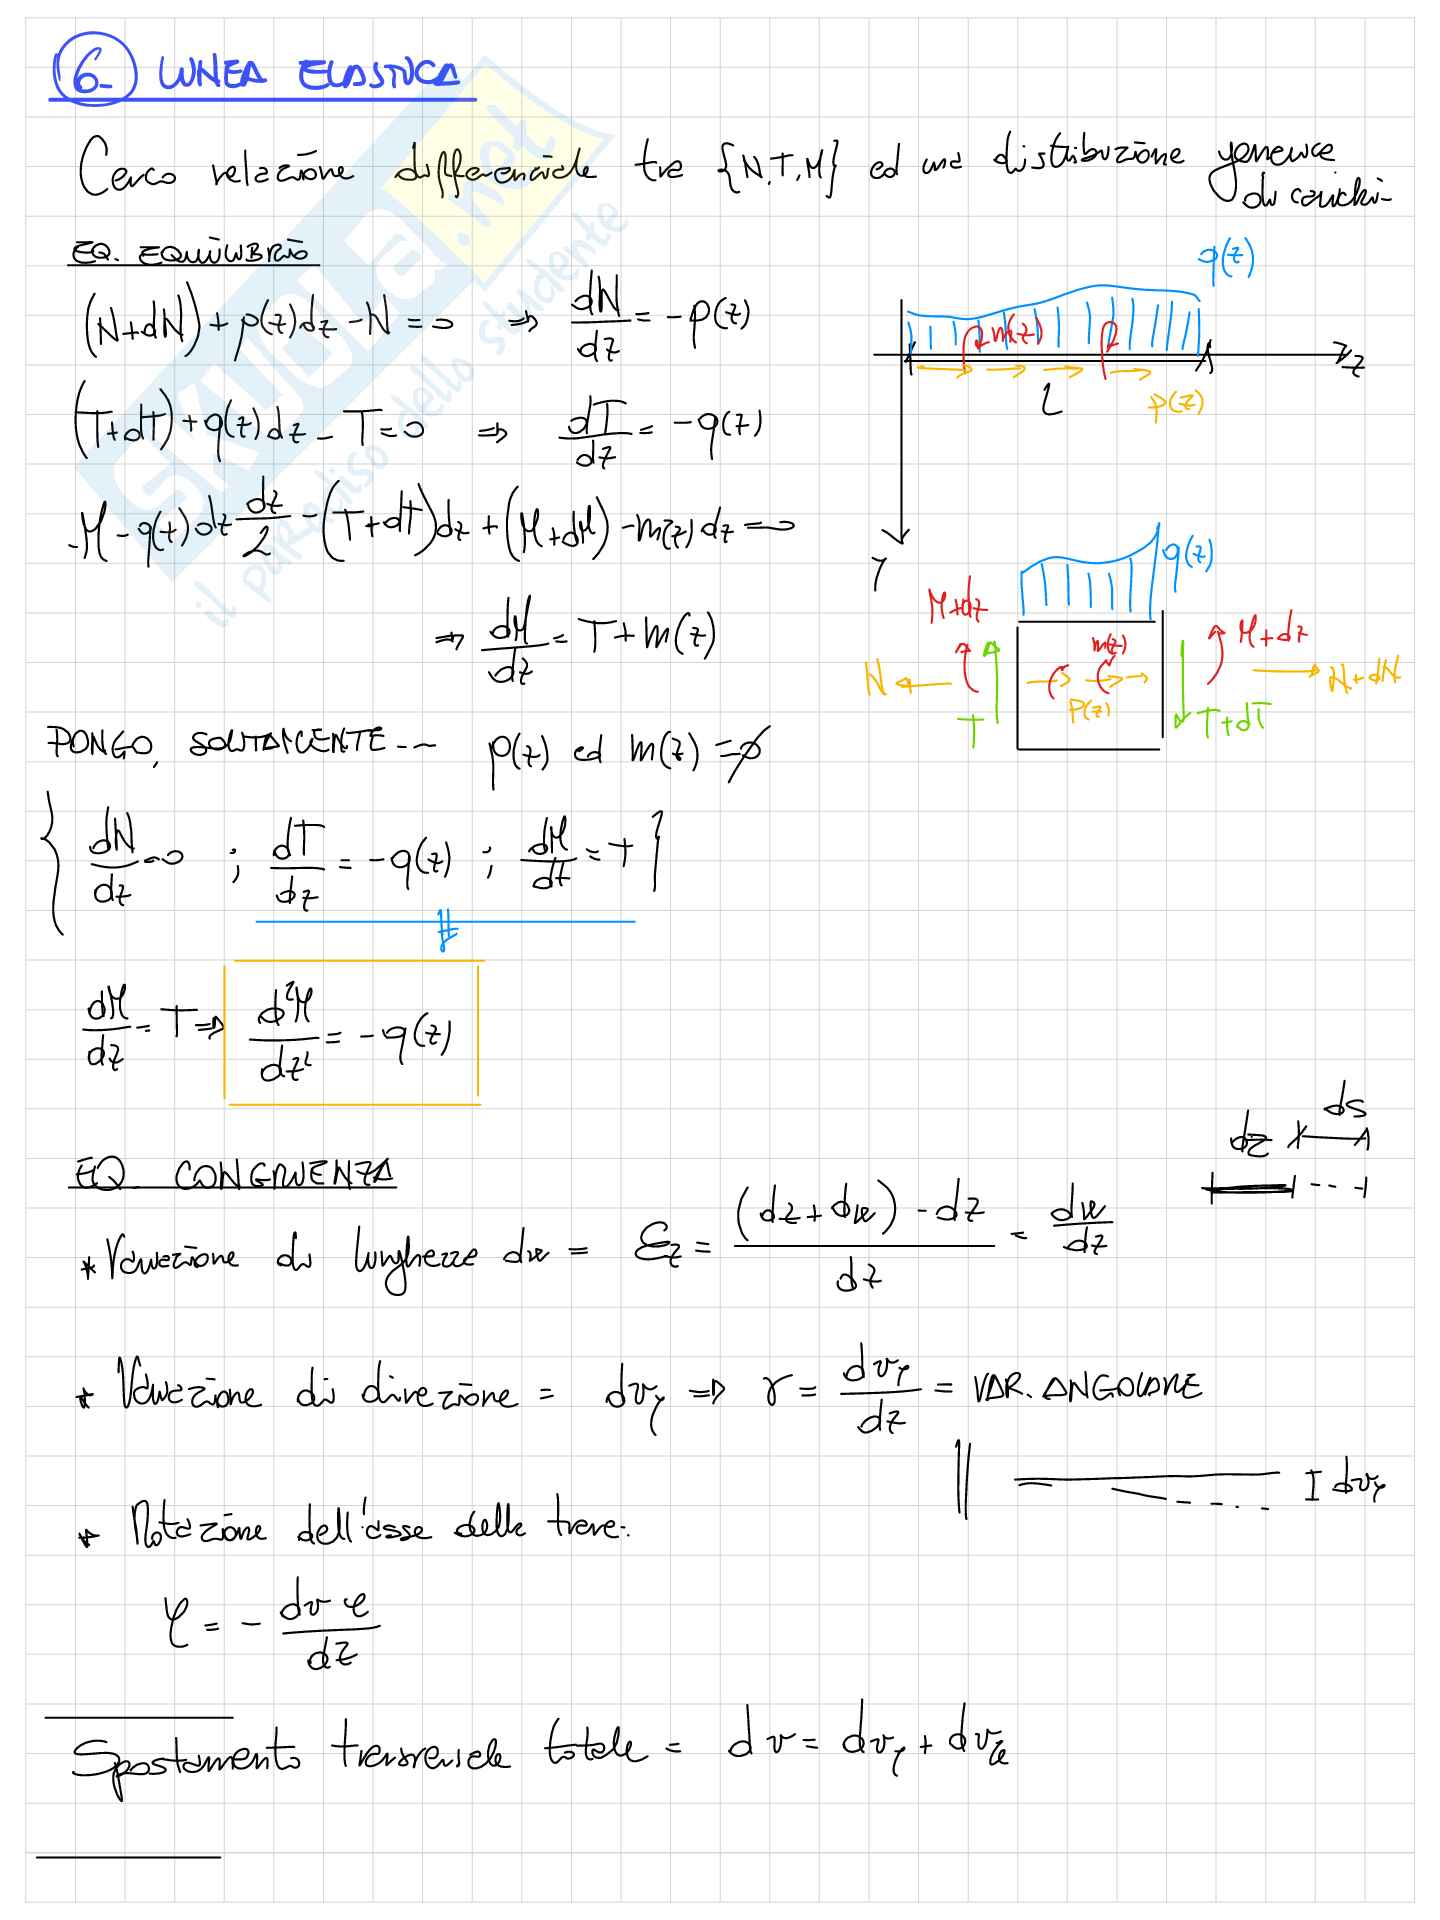 6. LINEA ELASTICA
Cerco relazione differenziale tra {N,T,M} ed una distribuzione generica
di carichi-
EQ. EQUILIBRIO
(N+dN)+p(z)dz-N=0 ⇒ dN/dz = -p(z)
(T+dT)+q(z)dz-T=0 ⇒ dT/dz = -q(z)
-M-q(z)dz dz/2 -(T+dT)dz+(M+dM)-m(z)dz=0
⇒ dM/dz = T+m(z)
q(z)
m(z)
z
L
p(z)
Y
q(z)
M+dz
m(z)
M+dz
N
p(z)
N+dN
T
T+dT
PONGO, SOLITAMENTE -- p(z) ed m(z)=ø
{ dN/dz=0 ; dT/dz = -q(z) ; dM/dt = T }
dM/dz = T ⇒ d²M/dz² = -q(z)
ds
dz
EQ. CONGRUENZA
* Variazione di lunghezza dw = εz = ((dz+dw)-dz)/dz = dw/dz
* Variazione di direzione = dvγ ⇒ γ = dvγ/dz = VAR. ANGOLARE
dvγ
* Rotazione dell'asse della trave:
φ = - dvφ/dz
Spostamento trasversale totale = dv = dvγ + dvφ
SKUOLA.net
il paradiso dello studente